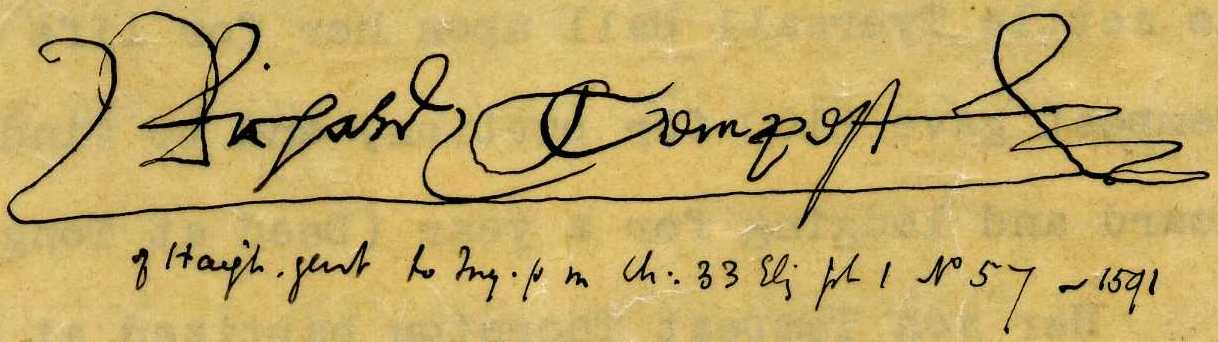 Richard Tempest
of Haigh. gent to Inq. p m Ch: 33 Eliz pt 1 No 57 ~ 1591